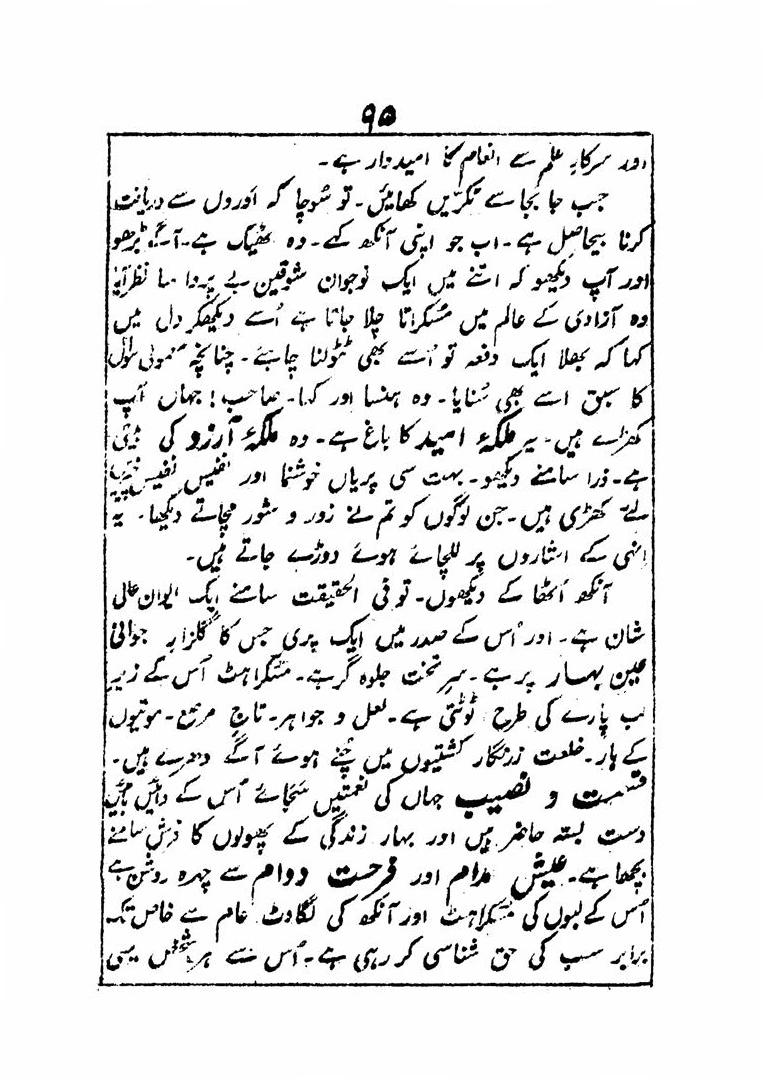 ۹۵
اور سرکارِ علم سے انعام کا امیدوار ہے۔
جب جا بجا سے ٹکریں کھائیں۔ تو سُوچا کہ اَوروں سے دریافت
کرنا بیحاصل ہے۔ اب جو اپنی آنکھ کہے۔ وہ ٹھیک ہے۔ آگے بڑھو
اور آپ دیکھو کہ اتنے میں ایک نوجوان شوقین بے پروا سا نظر آیا
وہ آزادی کے عالم میں مُسکراتا چلا جاتا ہے اُسے دیکھکر دل میں
کہا کہ بھلا ایک دفعہ تو اُسے بھی ٹٹولنا چاہئے۔ چنانچہ معمولی سوال
کا سبق اسے بھی سُنایا۔ وہ ہنسا اور کہا۔ صاحب! جہاں آپ
کھڑے ہیں۔ یہ ملکۂ امید کا باغ ہے۔ وہ ملکۂ آرزو کی بیٹی
ہے۔ ذرا سامنے دیکھو۔ بہت سی پریاں خوشنما اور نفیس نفیس چیزیں
لئے کھڑی ہیں۔ جن لوگوں کو تم نے زور و شور مچاتے دیکھا۔ یہ
انہی کے اشاروں پر للچائے ہوئے دوڑے جاتے ہیں۔
آنکھ اُٹھا کے دیکھوں۔ تو فی الحقیقت سامنے ایک ایوان عالی
شان ہے۔ اور اُس کے صدر میں ایک پری جس کا گلزارِ جوانی
عین بہار پر ہے۔ سرِ تخت جلوہ گر ہے۔ مُسکراہٹ اُس کے زیرِ
لب پارے کی طرح لُوٹتی ہے۔ لعل و جواہر۔ تاجِ مرصع۔ موتیوں
کے ہار۔ خلعت زرنگار کشتیوں میں چُنے ہوئے آگے دھرے ہیں۔
قسمت و نصیب جہاں کی نعمتیں سجائے اُس کے دائیں بائیں
دست بستہ حاضر ہیں اور بہار زندگی کے پھولوں کا فرش سامنے
بچھا ہے۔ عیش مدام اور فرحت دوام سے چہرہ روشن ہے
اُس کے لبوں کی مُسکراہٹ اور آنکھ کی لگاوٹ عام سے خاص تک
برابر سب کی حق شناسی کر رہی ہے۔ اُس سے ہر شخص یہی